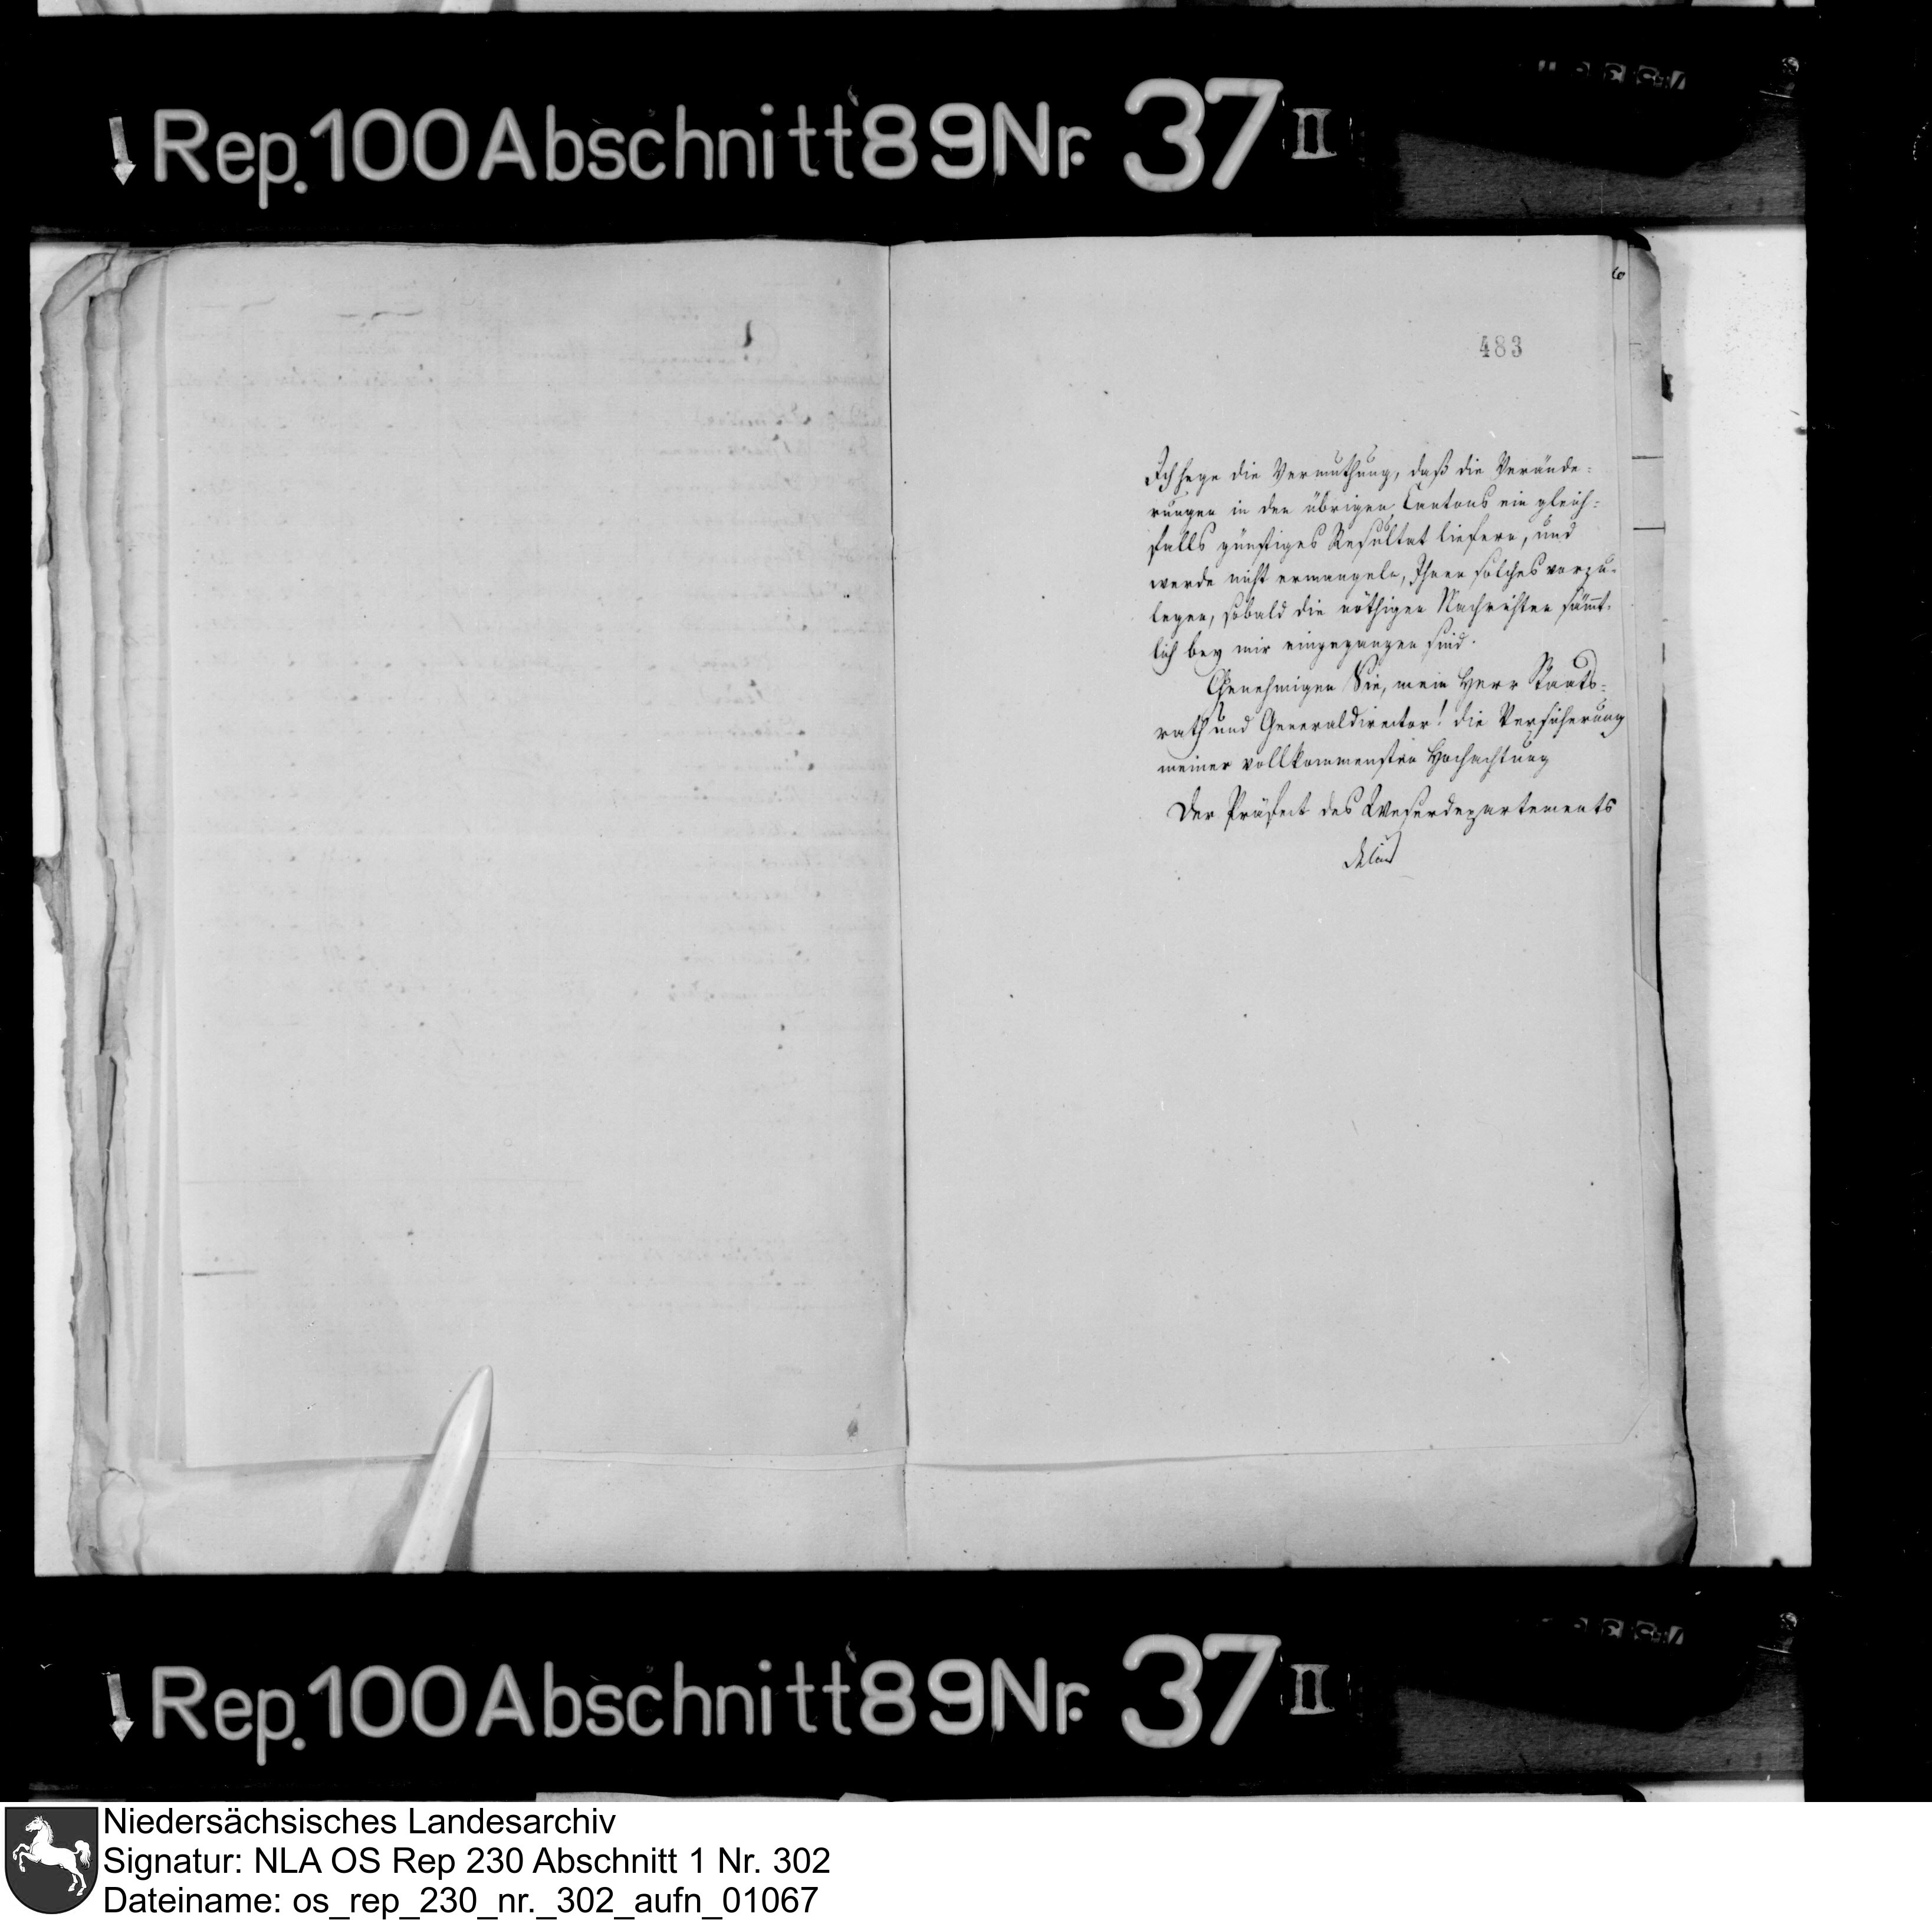 Rep. 100 Abschnitt 89 Nr. 37 II
483
Ich hege die Vermuthung, daß die Verände-
rungen in den übrigen Cantons ein gleich-
falls günstiges Resultat liefern, und
werde nicht ermangeln, Ihnen solches vorzu-
legen, sobald die nöthigen Nachrichten sämt-
lich bey mir eingegangen sind.
Genehmigen Sie, mein Herr Staats-
rath und Generaldirector! die Versicherung
meiner vollkommensten Hochachtung
Der Präfect des Weserdepartements
Delius
Rep. 100 Abschnitt 89 Nr. 37 II
Niedersächsisches Landesarchiv
Signatur: NLA OS Rep 230 Abschnitt 1 Nr. 302
Dateiname: os_rep_230_nr._302_aufn_01067